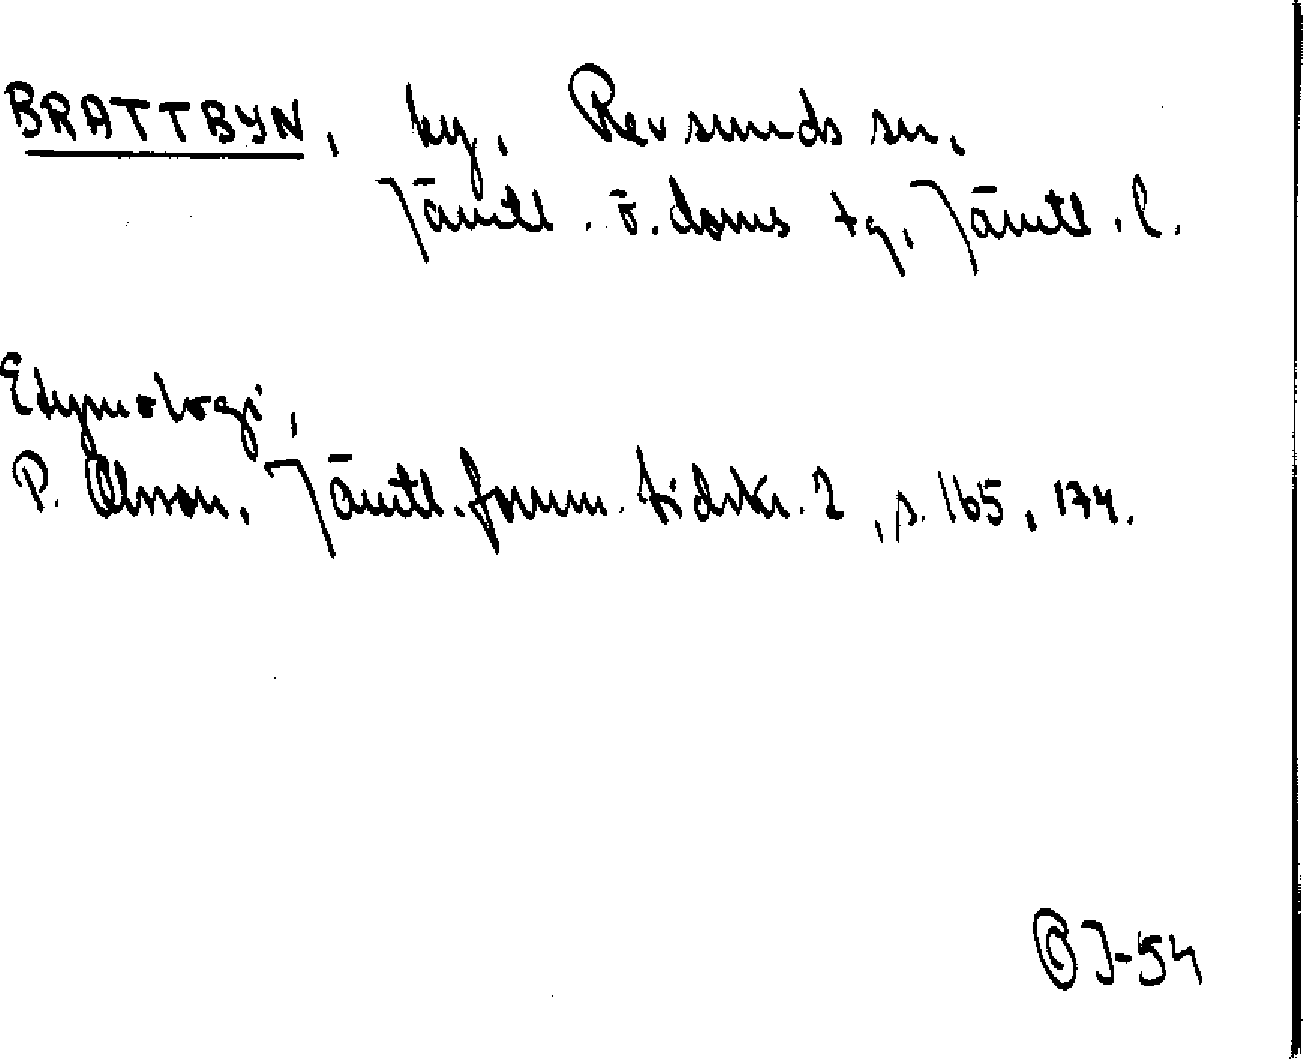 BRATTBYN, by, Revsunds sn,
Jämtl. ö. doms tg, Jämtl. l.
Etymologi,
P. Olsson, Jämtl. fornm. tidskr. 2, s. 165, 174.
OJ-54